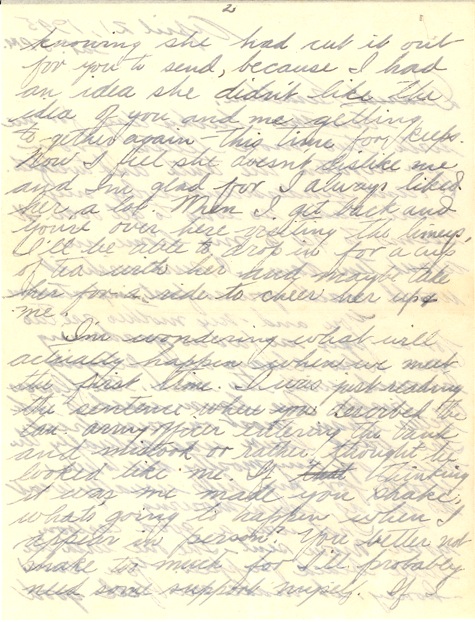 2
knowing she had cut it out
for you to send, because I had
an idea she didn't like the
idea of you and me getting
to gether again this time for keeps.
Now I feel she doesn't dislike me
and I'm glad for I always liked
her a lot. When I get back and
you're over here visiting the limeys
I'll be able to drop in for a cup
of tea with her and maybe take
her for a ride to cheer her up &
me.
I'm wondering what will
actually happen when we meet
the first time. I was just reading
the sentence where you described the
Can. army officer entering the bank
and mistook or rather thought he
looked like me. If that thinking
it was me made you shake,
whats going to happen when I
appear in person? You better not
shake too much for I'll probably
need some support myself. If I